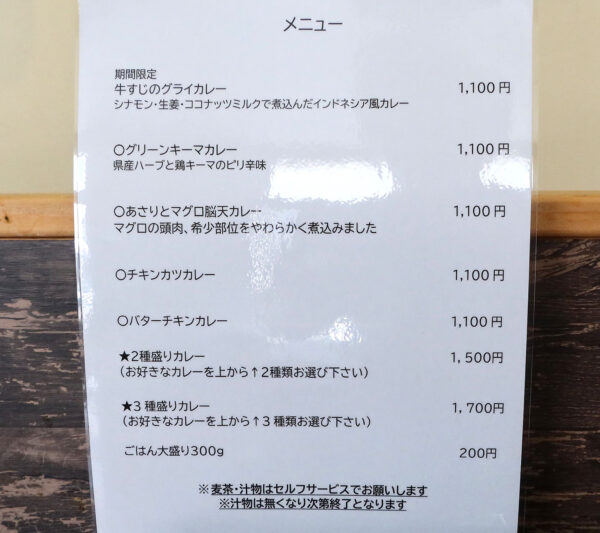 メニュー
期間限定
牛すじのグライカレー 1,100 円
シナモン・生姜・ココナッツミルクで煮込んだインドネシア風カレー
〇グリーンキーマカレー 1,100 円
県産ハーブと鶏キーマのピリ辛味
〇あさりとマグロ脳天カレー 1,100 円
マグロの頭肉、希少部位をやわらかく煮込みました
〇チキンカツカレー 1,100 円
〇バターチキンカレー 1,100 円
★2種盛りカレー 1,500円
（お好きなカレーを上から↑2種類お選び下さい）
★3種盛りカレー 1,700円
（お好きなカレーを上から↑3種類お選び下さい）
ごはん大盛り300g 200円
※麦茶・汁物はセルフサービスでお願いします
※汁物は無くなり次第終了となります